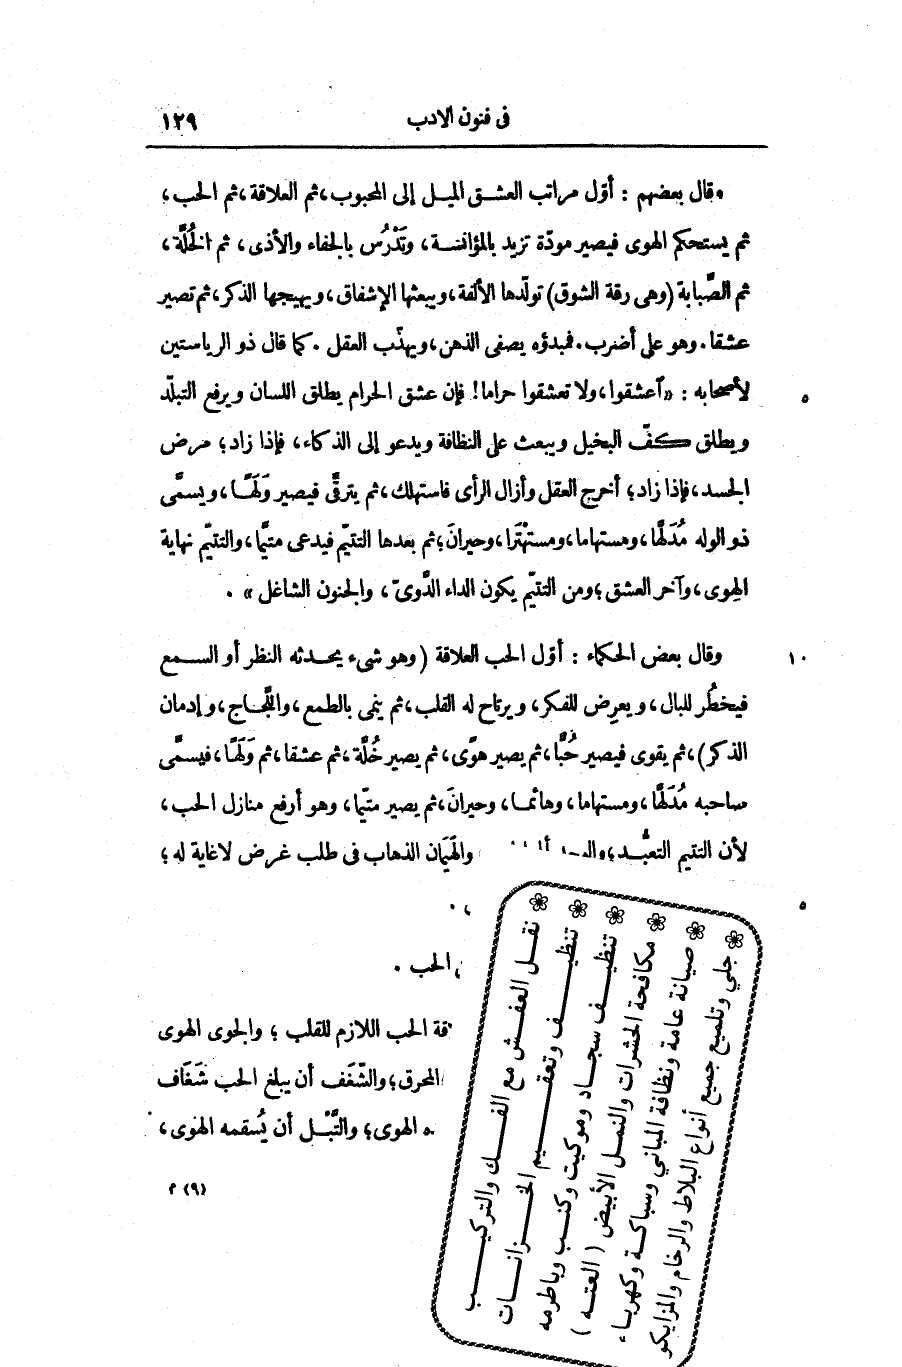 فى فنون الادب ١٢٩
وقال بعضهم : أوّل مراتب العشق الميل إلى المحبوب، ثم العلاقة، ثم الحب،
ثم يستحكم الهوى فيصير مودّة تزيد بالمؤانسة، وتَدْرُس بالجفاء والأذى، ثم الخُلَّة،
ثم الصَّبابة (وهى رقة الشوق) تولّدها الألفة، ويبعثها الإشفاق، ويهيجها الذكر، ثم تصير
عشقا. وهو على أضرب. فمبدؤه يصفى الذهن، ويهذّب العقل . كما قال ذو الرياستين
لأصحابه : «اعشقوا، ولا تعشقوا حراما! فإن عشق الحرام يطلق اللسان ويرفع التبلّد ٥
ويطلق كفّ البخيل ويبعث على النظافة ويدعو إلى الذكاء، فإذا زاد؛ مرض
الجسد، فإذا زاد؛ أخرج العقل وأزال الرأى فاستهلك، ثم يترقَّى فيصير وَلَهًا، ويسمَّى
ذو الوله مُدَلَّهًا، ومستهاما، ومستهْتَرا، وحيرانَ؛ ثم بعدها التتيّم فيدعى متيَّما، والتتيّم نهاية
الهوى، وآخر العشق؛ ومن التتيّم يكون الداء الدَّوىّ، والجنون الشاغل» .
وقال بعض الحكماء : أوّل الحب العلاقة (وهو شىء يحدثه النظر أو السمع ١٠
فيخطُر للبال، ويعرِض للفكر، ويرتاح له القلب، ثم ينمى بالطمع، واللَّجاج، وإدمان
الذكر)، ثم يقوى فيصير حُبًّا، ثم يصير هوًى، ثم يصير خُلَّة، ثم عشقا، ثم وَلَهًا، فيسمَّى
صاحبه مُدَلَّهًا، ومستهاما، وهائما، وحيرانَ، ثم يصير متيّما، وهو أرفع منازل الحب،
لأن التتيم التعبُّد؛ والهَيَمان الذهاب فى طلب غرض لاغاية له؛
، . ٥
، الحب .
الحب اللازم للقلب ؛ والجوى الهوى
المحرق؛ والشَّغَف أن يبلغ الحب شَغَاف
الهوى؛ والتَّبْل أن يُسقمه الهوى،
(٩) م
نقل العفش مع الفك والتركيب
تنظيف وتعقيم الخزانات
تنظيف سجاد وموكيت وكنب وباطرمه
مكافحة الحشرات والنمل الأبيض ( العته )
صيانة عامة ونظافة المباني وسباكة وكهرباء
جلي وتلميع جميع أنواع البلاط والرخام والمزايكو